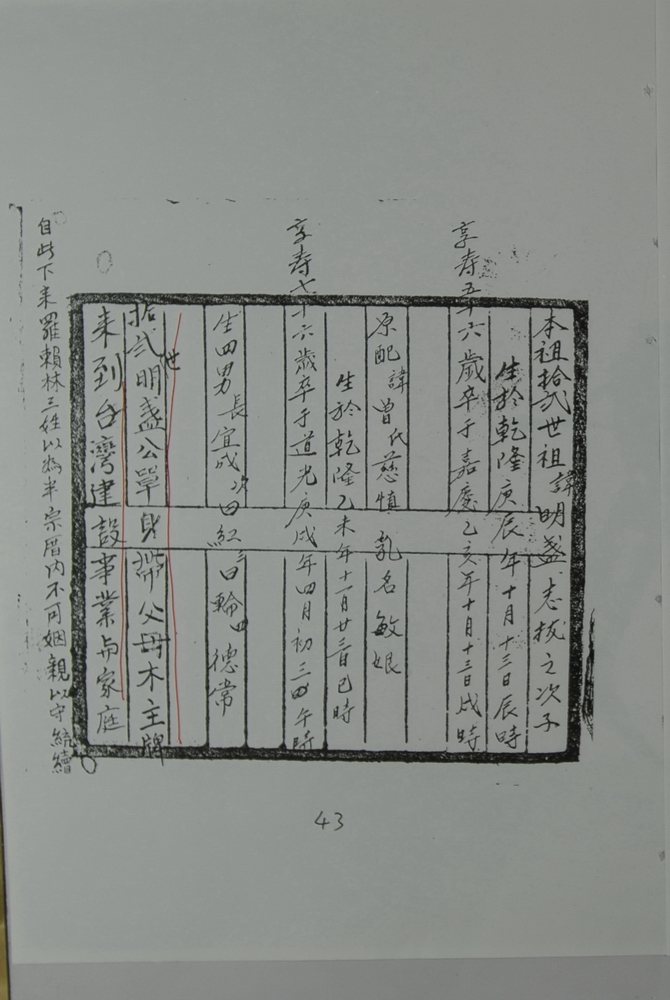 本祖拾弍世祖諱明盏志拔之次子
生於乾隆庚辰年十月十三日辰時
享寿五十六歲卒于嘉慶乙亥年十月十三日戌時
原配諱曾氏慈慎乳名敏娘
生於乾隆乙未年十一月廿三日巳時
享寿七十六歲卒于道光庚戌年四月初三日午時
生四男長宜成次曰紅三曰輪四德常
拾弍世明盏公單身帶父母木主牌
来到台灣建設事業与家庭
自此下来羅賴林三姓以為半宗厝内不可姻親以守統續
43